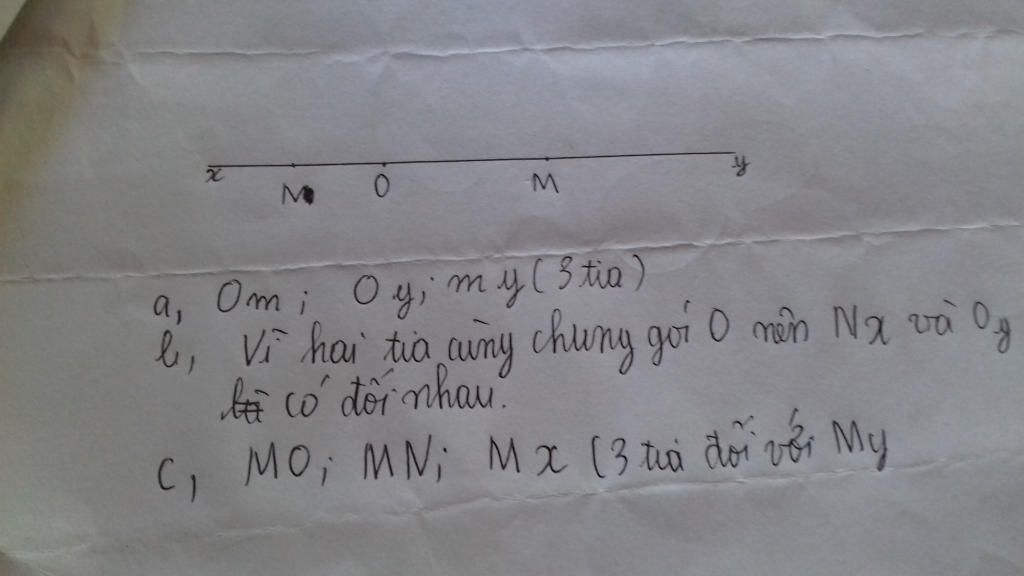 x M O M y
a, Om; Oy; my (3 tia)
b, Vì hai tia cùng chung gối O nên Nx và Oy
có đối nhau.
c, MO; MN; Mx (3 tia đối với My